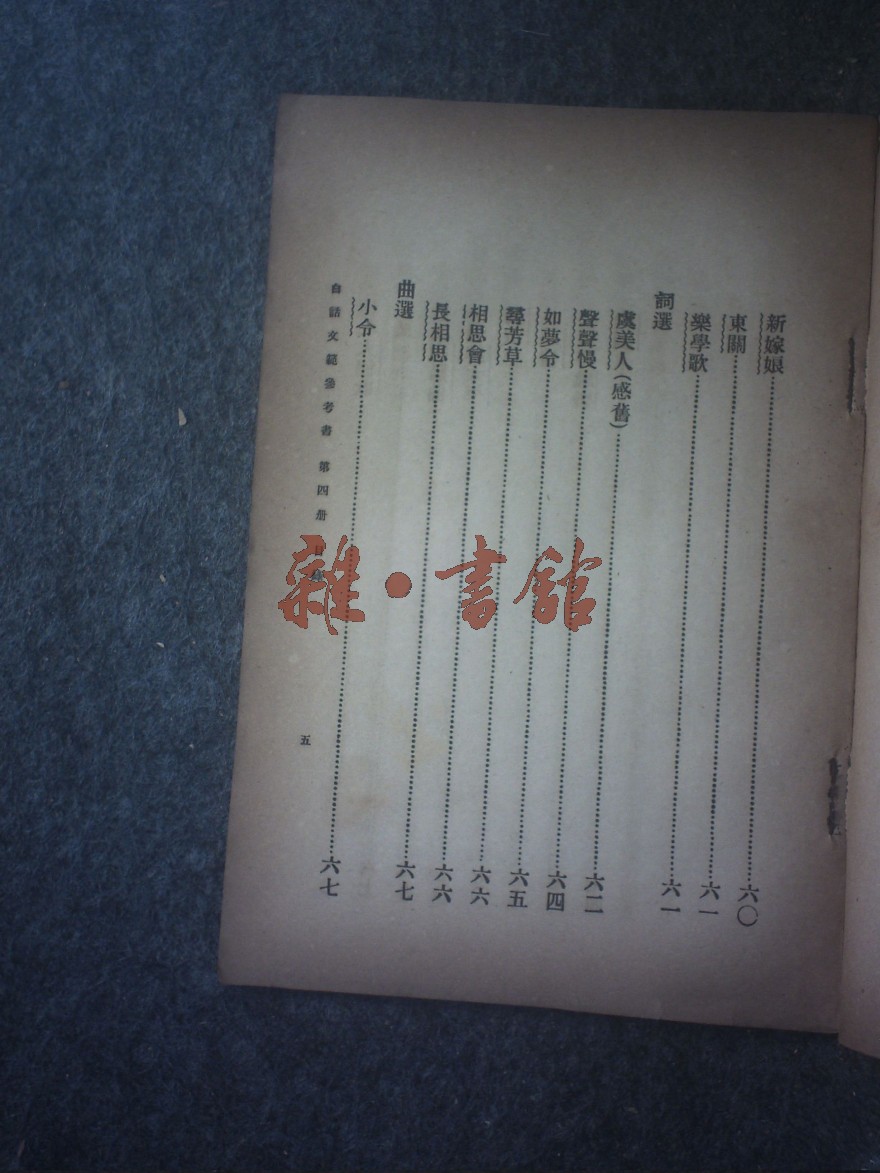 新嫁娘………六〇
東關………六一
樂學歌………六一
詞選
虞美人(感舊)………六二
聲聲慢………六四
如夢令………六五
尋芳草………六六
相思會………六六
長相思………六七
曲選
小令………六七
白話文範參考書 第四册 目 五
雜·書館